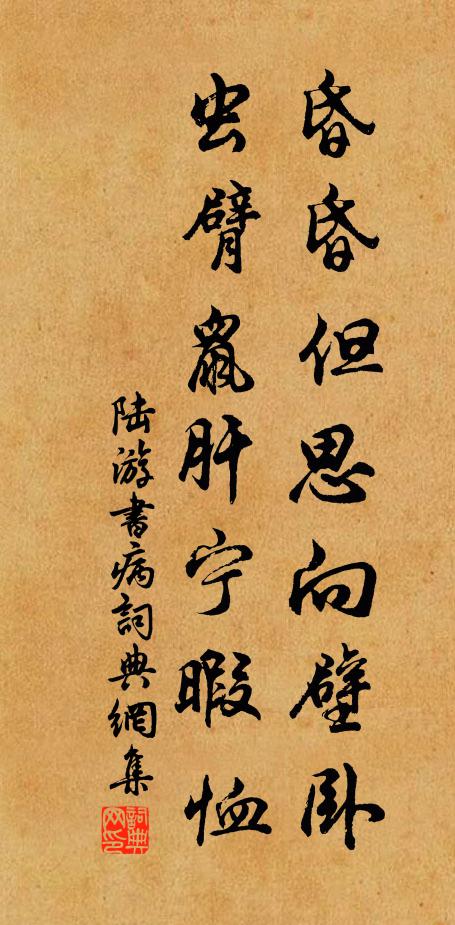 昏昏但思向壁卧
虫臂鼠肝宁暇恤
陆游書病詞典網集
詞典网印